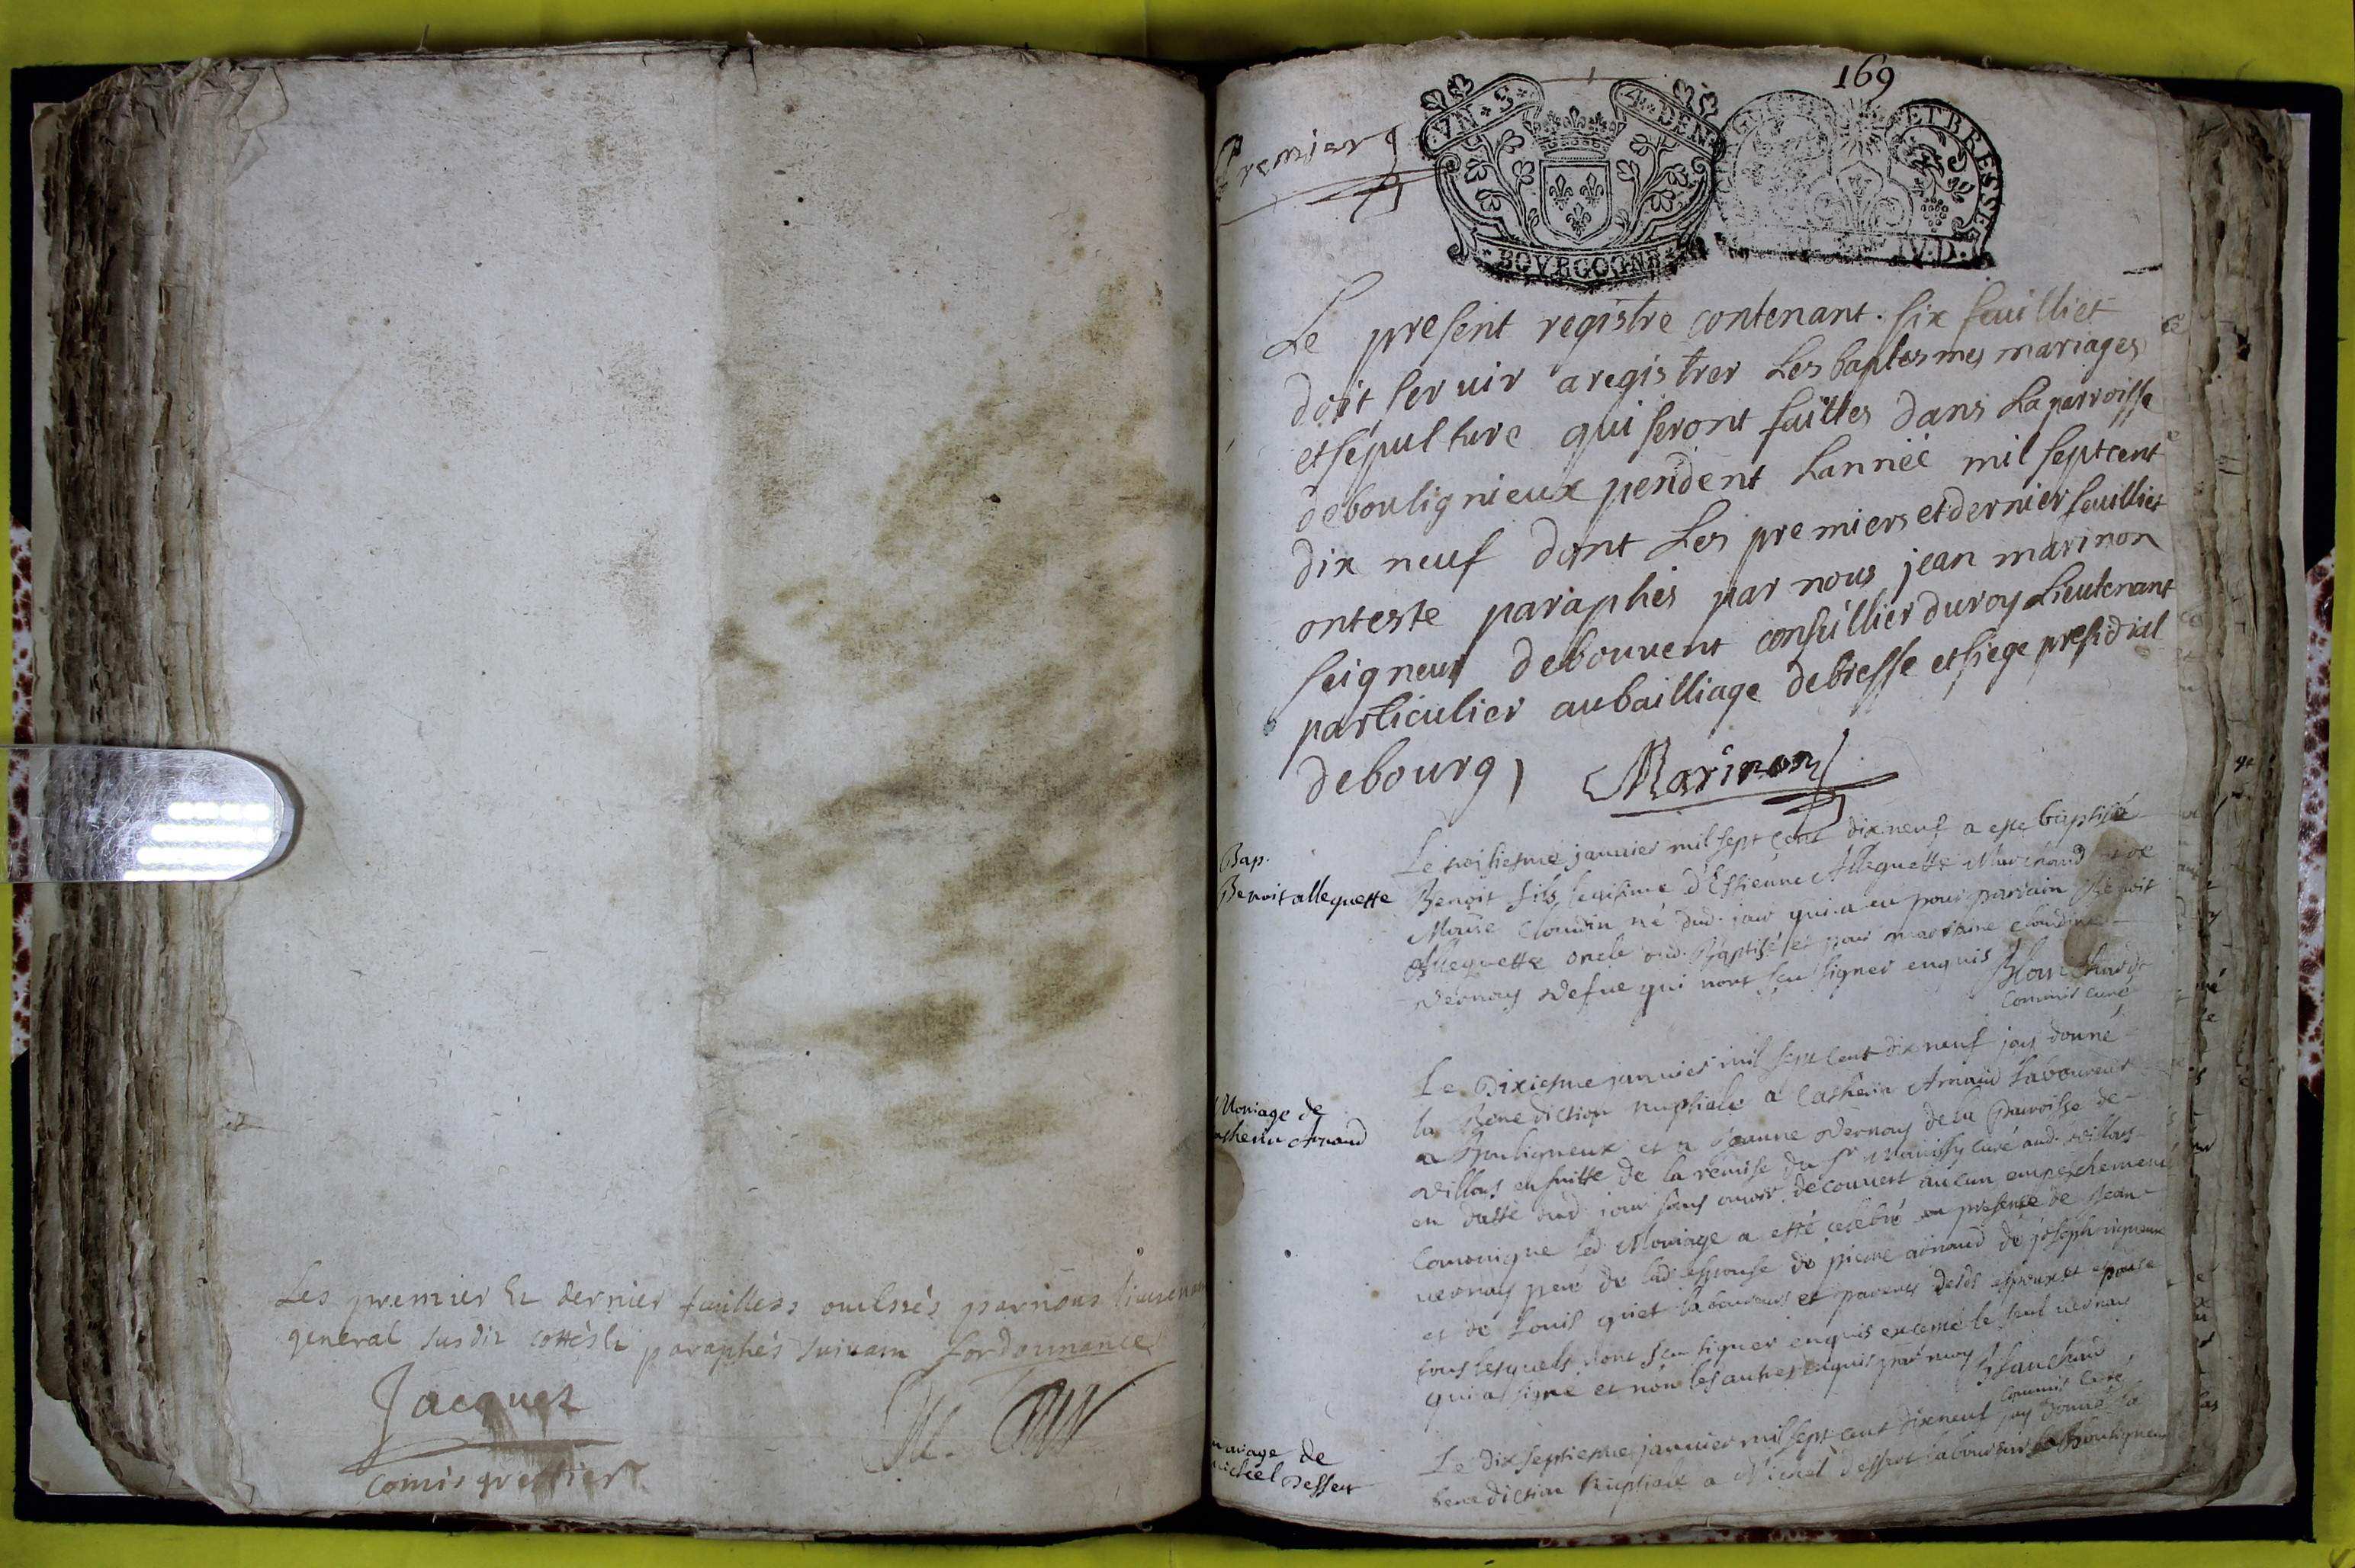 Les premier & dernier feuillets ont estés par nous lieutenant
general susdit cottés & paraphés suivant l'ordonnance
Jacquet
comis greffier
169
VN·S· 4·DEN
BOVRGOGNE
ET BRESSE
IV.D.
Premier
Le present registre contenant six feuilliet
doit servir a registrer les baptesmes mariages
et sépulture qui seront faittes dans la parroisse
de boulignieux pendent lannéé mil septcent
dix neuf dont Les premiers et dernier feuilliet
onteste paraphés par nous jean marinon
seigneur debouvent conseillier du roy Lieutenant
particulier au bailliage debresse et siege presidial
de bourg Marinon
Bap.
Benoit alleguette
Le janvier mil sept cent dix neuf a este baptisé
Benoit fils legitime d'Estienne Alleguette Marchand et de
Claudin né dud. jour qui a eu pour parrain Benoit
Alleguette oncle dud. Baptisé et pour marraine claudine
Vernay qui nont sçu signer enquis Blanchard
Commis curé
Mariage de
Arnaud
Le Dixiesme janvier mil sept cent dix neuf jay donné
la Benediction nuptiale a Catherin Arnaud Laboureur
a Bouligneux et a Jeanne Vernay de la Paroisse de
Villars ensuitte de la remise du Sr curé aud. Villars
en datte dud. jour sans avoir decouvert aucun empeschement
Canonique led. Mariage a esté celebré en presence de Jean
vernay pere de lad. espouse de pierre arnaud de joseph
et de Louis laboureurs et parents desds. espoux et epouse
tous lesquels nont sçu signer enquis excepté le seul vernay
qui a signé et non les autres enquis par moy Blanchard
Commis Curé
mariage de
michel Dessert
Le dix septiesme janvier mil sept cent dix neuf jay donné la
benediction Nuptiale a Michel Dessert laboureur a Bouligneux